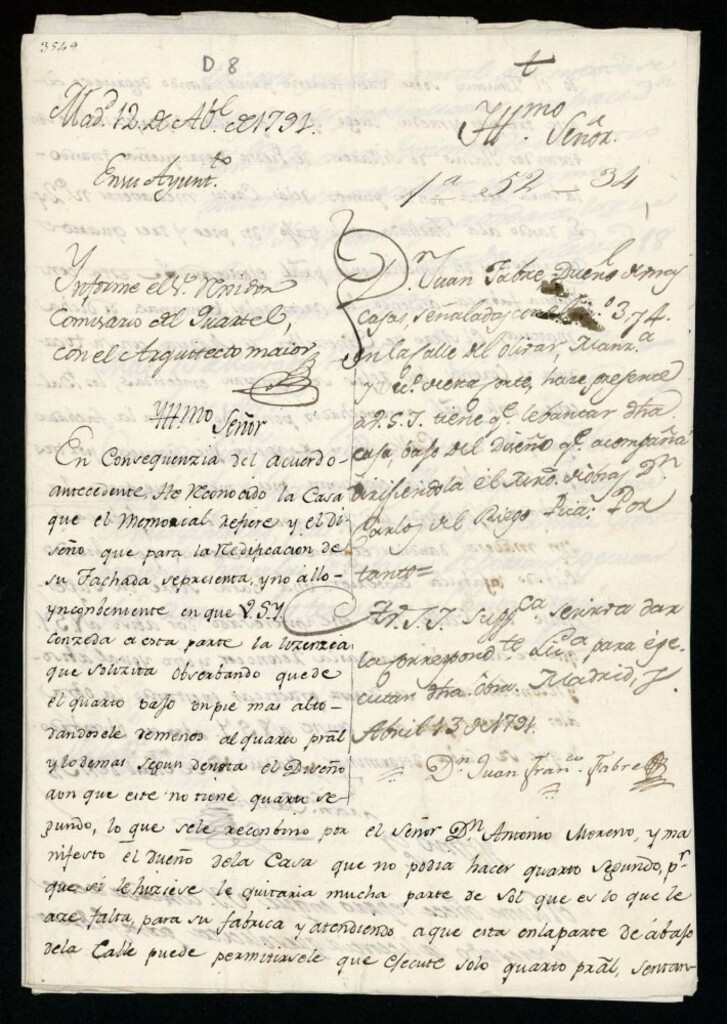 3549
D 8
t
Mad.d 12 de Ab.l de 1791.
En su Ayunt.to
Yll.mo Señor.
1a 52 34
Ynforme el S.r Rexidor
Comisario del Quartel,
con el Arquitecto maior
D.n Juan Fabre, Dueño de
Casas, señaladas con 3,74.
en la Calle del Olivar, Manz.a
hace presente
a V.S.I. tiene q.e lebantar dha
casa, bajo del Diseño q.e acompaña
D.n
Carlos del Riego Pica: Por
tanto=
A V.S.I. Supp.ca se sirva dar
la correspond.te Lic.a para ege-
cutar dha Obra. Madrid, y
Abril 13 de 1791.
D.n Juan Fran.co Fabre
Yll.mo Señor
En Consequenzia del acuerdo-
antecedente, He Reconocido la Casa
que el Memorial Refiere y el di
seño que para la Redificacion de
su Fachada representa, y no allo-
ynconbeniente en que V.S.Y.
Conzeda a esta parte la lizenzia
que solizita obserbando que de
el quarto bajo un pie mas alto-
dandosele de menos al quarto pral
y lo demas segun denota el Diseño
aun que este no tiene quarto se
gundo, lo que se le reconbino por el Señor D.n Antonio Moreno, y ma
nifesto el dueño dela Casa que no podia hacer quarto segundo, pr
que si le hiziese le quitaria mucha parte de sol que es lo que le
aze falta, para su fabrica y atendiendo a que esta enla parte de ábajo
dela Calle puede permitirsele que ejecute solo quarto prál, sentan-